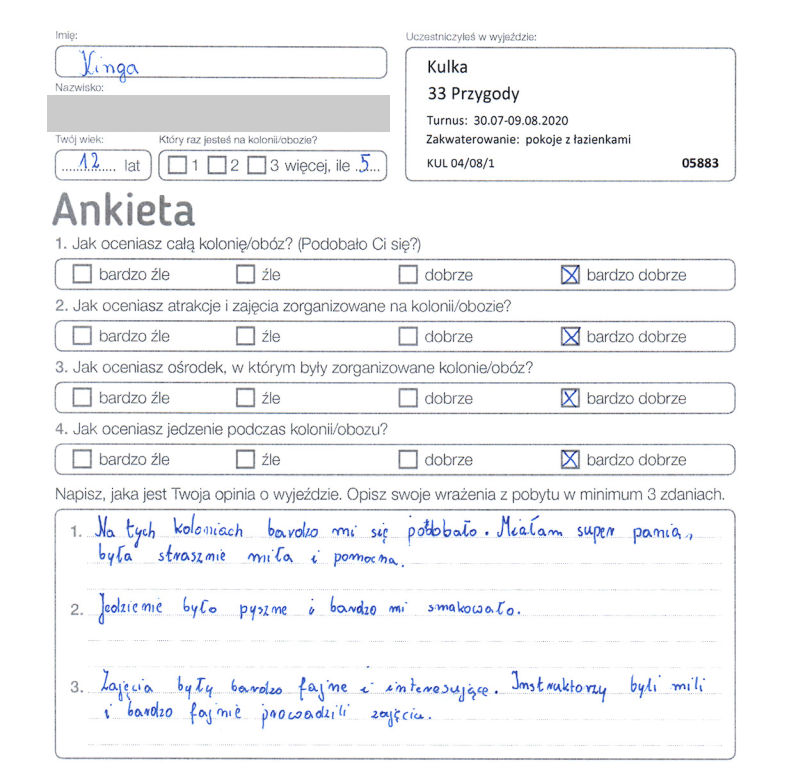 Imię:
Kinga
Nazwisko:
Twój wiek:
12 lat
Który raz jesteś na kolonii/obozie?
1 2 3 więcej, ile 5
Uczestniczyłeś w wyjeździe:
Kulka
33 Przygody
Turnus: 30.07-09.08.2020
Zakwaterowanie: pokoje z łazienkami
KUL 04/08/1 05883
Ankieta
1. Jak oceniasz całą kolonię/obóz? (Podobało Ci się?)
bardzo źle źle dobrze bardzo dobrze
2. Jak oceniasz atrakcje i zajęcia zorganizowane na kolonii/obozie?
bardzo źle źle dobrze bardzo dobrze
3. Jak oceniasz ośrodek, w którym były zorganizowane kolonie/obóz?
bardzo źle źle dobrze bardzo dobrze
4. Jak oceniasz jedzenie podczas kolonii/obozu?
bardzo źle źle dobrze bardzo dobrze
Napisz, jaka jest Twoja opinia o wyjeździe. Opisz swoje wrażenia z pobytu w minimum 3 zdaniach.
1. Na tych koloniach bardzo mi się potobało. Miałam super panią,
była strasznie miła i pomocna.
2. Jedzienie było pyszne i bardzo mi smakowało.
3. Zajęcia były bardzo fajne i interesujące. Instruktorzy byli mili
i bardzo fajnie prowadzili zajęcia.